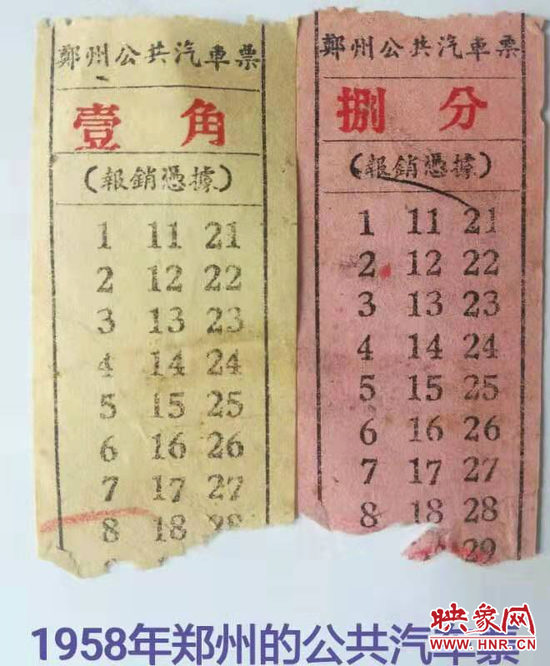 鄭州公共汽車票
壹角
(報銷憑據)
1 11 21
2 12 22
3 13 23
4 14 24
5 15 25
6 16 26
7 17 27
8 18 28
鄭州公共汽車票
捌分
(報銷憑據)
1 11 21
2 12 22
3 13 23
4 14 24
5 15 25
6 16 26
7 17 27
8 18 28
29
1958年郑州的公共汽车票
映象网
WWW.HNR.CN